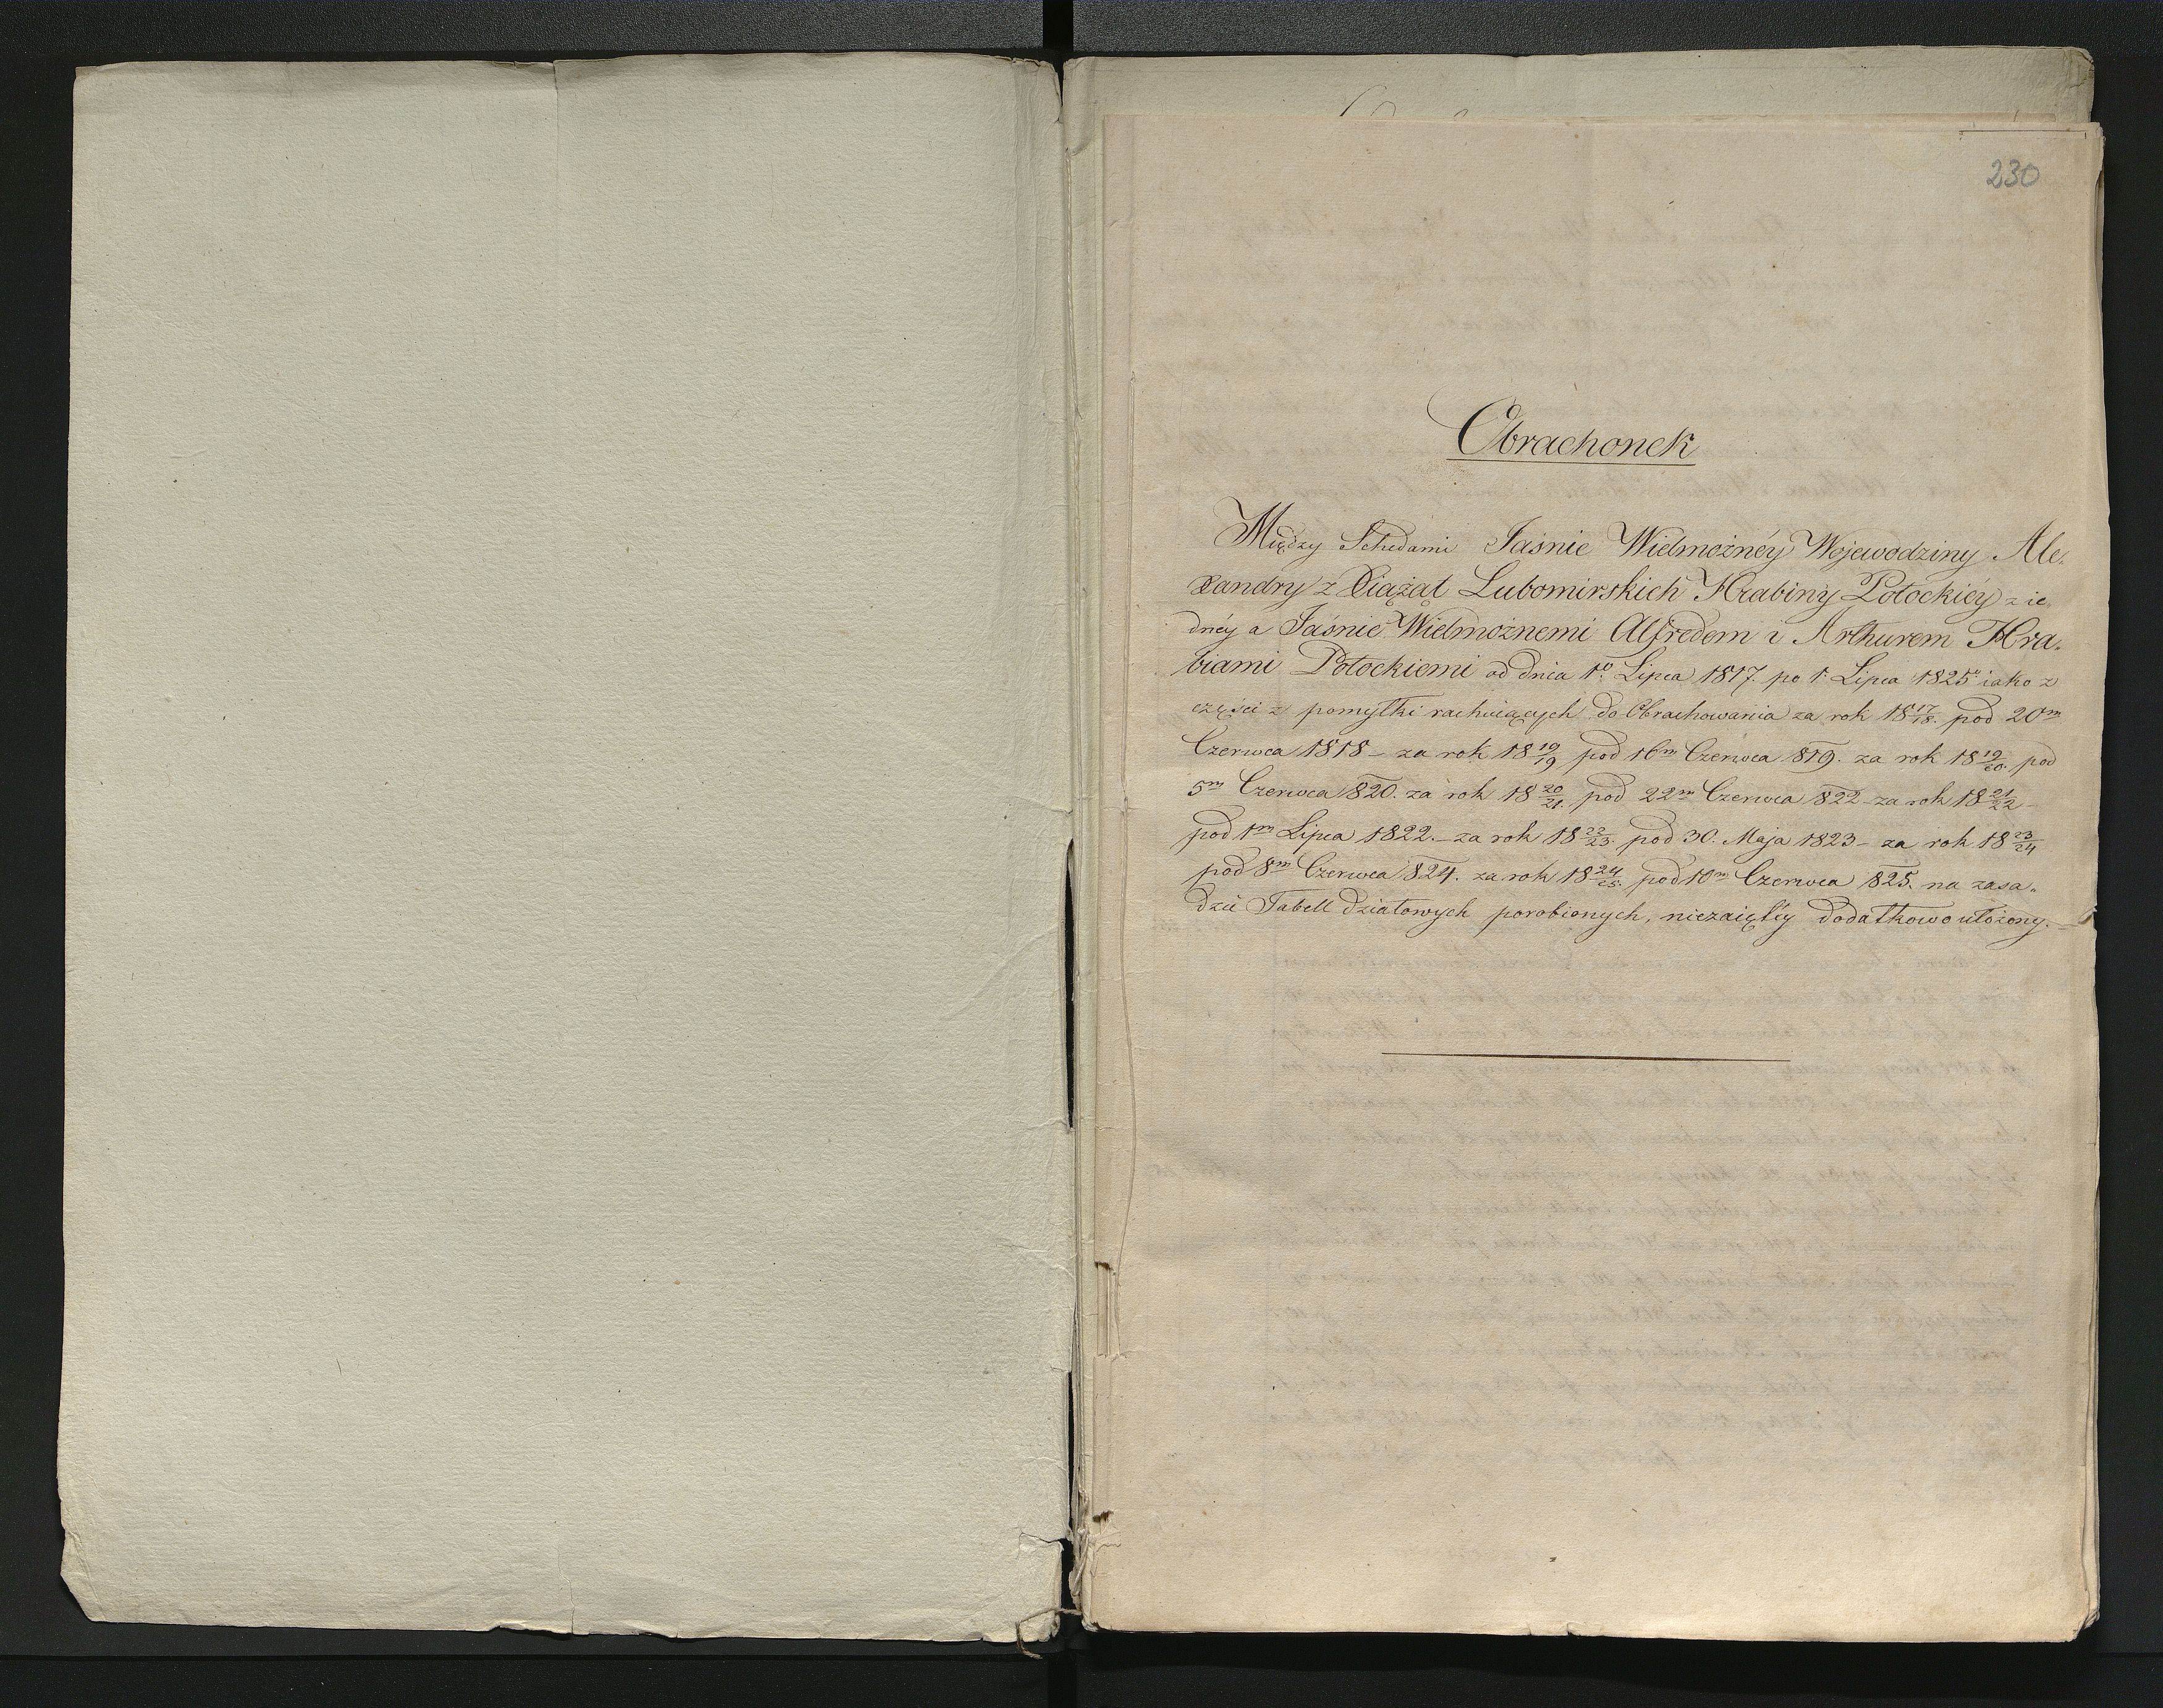 230
Obrachonek
Między Schedami Jaśnie Wielmożnéy Wojewodziny Ale=
xandry z Xiążąt Lubomirskich Hrabiny Potockiéy z ie=
dnéy a Jaśnie Wielmożnemi Alfredem i Arthurem Hra=
biami Potockiemi od dnia 1º Lipca 1817. po 1º Lipca 1825 iako z
części z pomyłki rachuiących do Obrachowania za rok 18 17/18. pod 20m
Czerwca 1818 – za rok 18 19/19 pod 16m Czerwca 819. za rok 18 19/20. pod
5m Czerwca 820. za rok 18 20/21. pod 22m Czerwca 822 – za rok 18 21/22 –
pod 1m Lipca 1822. – za rok 18 22/23. pod 30. Maja 1823 – za rok 18 23/24
pod 8m Czerwca 824. za rok 18 24/25. pod 10m Czerwca 825. na zasa=
dzie Tabell działowych porobionych, niezaięty dodatkowo ułożony. –